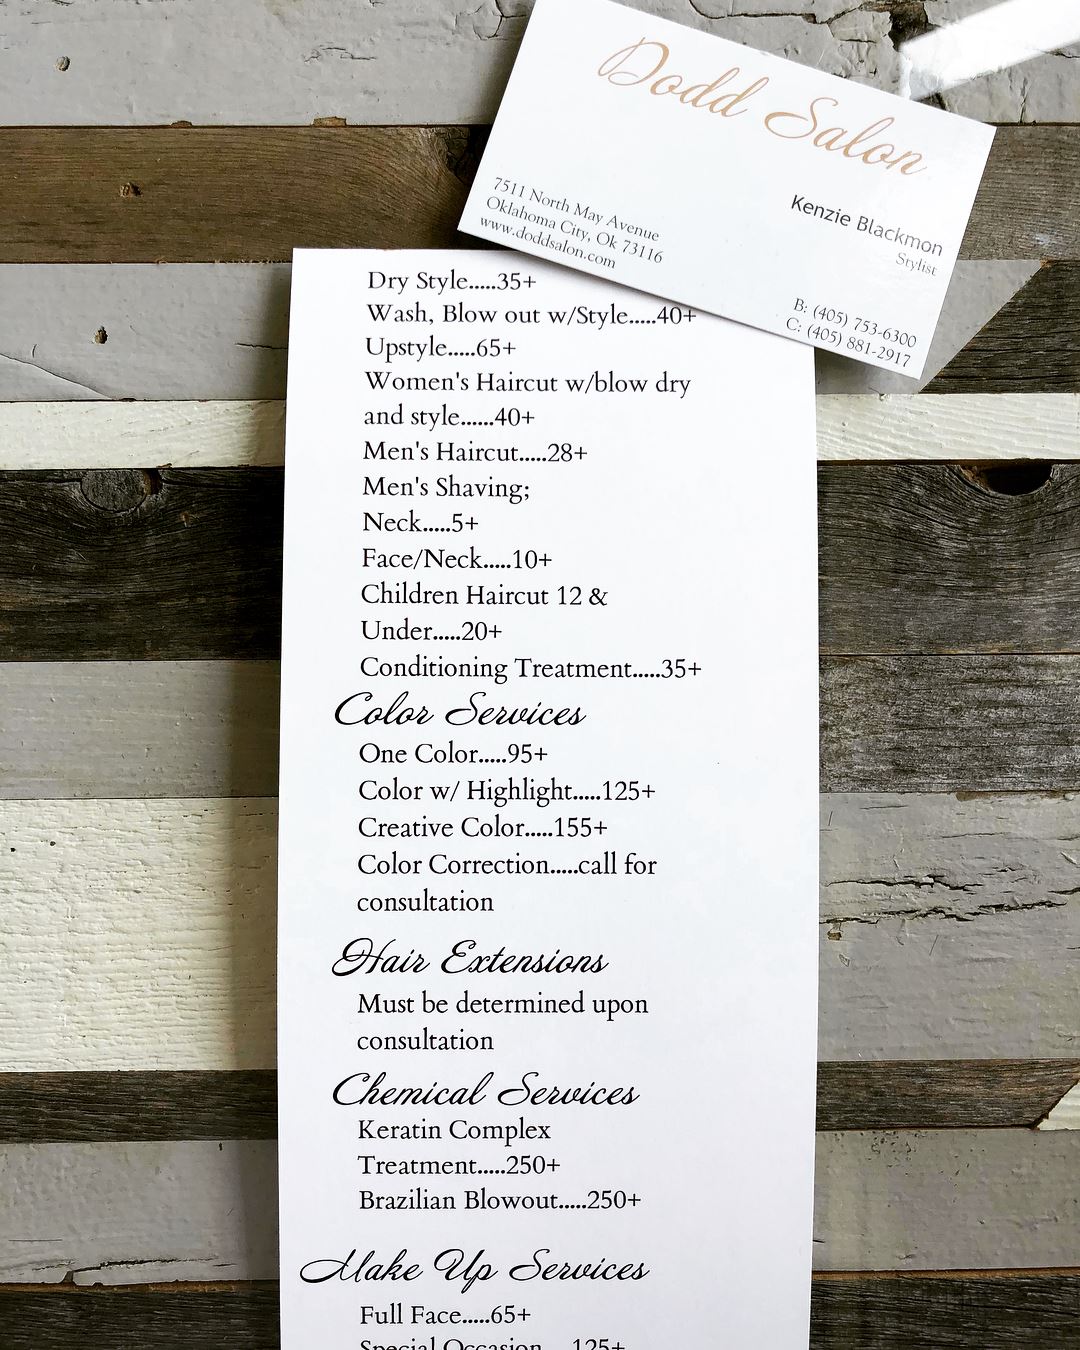 Dodd Salon
7511 North May Avenue
Oklahoma City, Ok 73116
www.doddsalon.com
Kenzie Blackmon
Stylist
B: (405) 753-6300
C: (405) 881-2917
Dry Style.....35+
Wash, Blow out w/Style.....40+
Upstyle.....65+
Women's Haircut w/blow dry
and style......40+
Men's Haircut.....28+
Men's Shaving;
Neck.....5+
Face/Neck.....10+
Children Haircut 12 &
Under.....20+
Conditioning Treatment.....35+
Color Services
One Color.....95+
Color w/ Highlight.....125+
Creative Color.....155+
Color Correction.....call for
consultation
Hair Extensions
Must be determined upon
consultation
Chemical Services
Keratin Complex
Treatment.....250+
Brazilian Blowout.....250+
Make Up Services
Full Face.....65+
Special Occasion.....125+